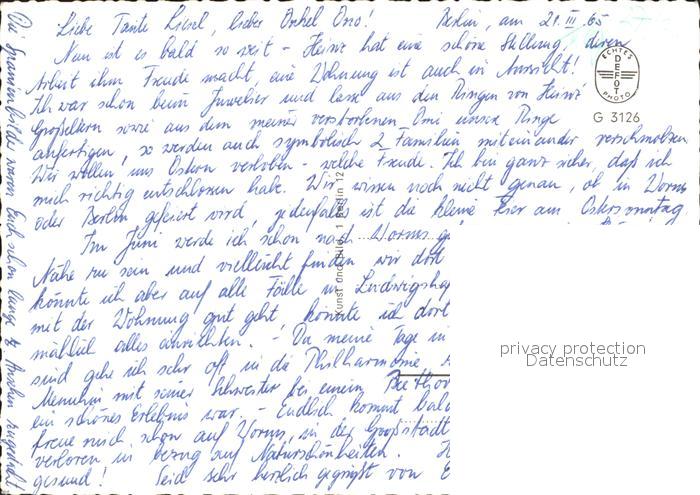 Liebe Tante Liesel, lieber Onkel Otto! Berlin, am 21. III. 65
Nun ist es bald so weit - Heinz hat eine schöne Stellung, deren
Arbeit ihm Freude macht, eine Wohnung ist auch in Aussicht!
Ich war schon beim Juwelier und lasse aus den Ringen von Heinz'
Großeltern sowie aus dem meiner verstorbenen Omi unsere Ringe
anfertigen, so werden auch symbolisch 2 Familien miteinander verschmolzen
Wir wollen uns Ostern verloben - welche Freude. Ich bin ganz sicher, daß ich
mich richtig entschlossen habe. Wir wissen noch nicht genau, ob in Worms
oder Berlin gefeiert wird, jedenfalls ist die kleine Feier am Ostersonntag
Im Juni werde ich schon nach Worms
Nähe zu sein und vielleicht finden wir dort
könnte ich aber auf alle Fälle in
mit der Wohnung gut geht, könnte ich dort
mählich alles einrichten. - Da meine Tage in
sind gehe ich sehr oft in die Philharmonie
Menuhin mit seiner Schwester bei einem
ein schönes Erlebnis war. - Endlich kommt
freue mich schon auf Worms, in der Großstadt
verloren in bezug auf Naturschönheiten.
gesund! Seid sehr herzlich gegrüßt von
Die
ECHTES
DEFOT
PHOTO
G 3126
Kunst und Bild, 1 Berlin 12
privacy protection
Datenschutz